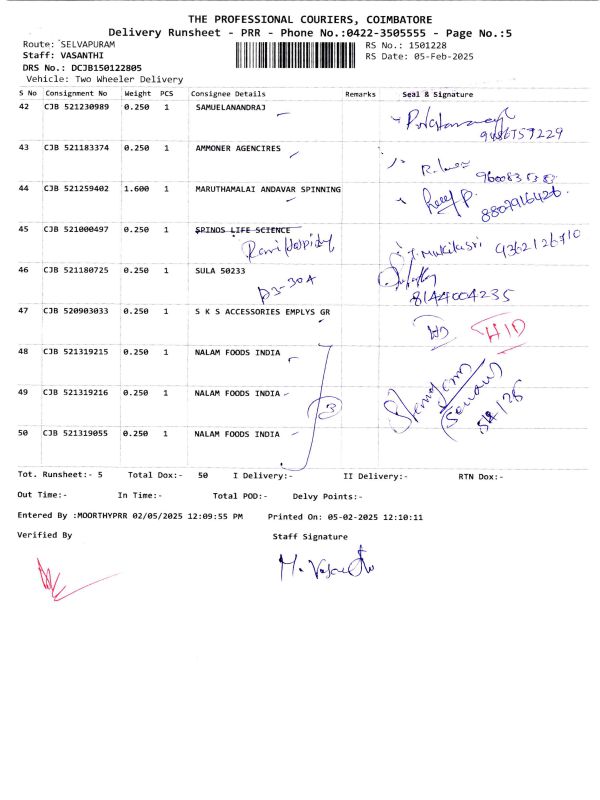 THE PROFESSIONAL COURIERS, COIMBATORE
Delivery Runsheet - PRR - Phone No.:0422-3505555 - Page No.:5
Route: SELVAPURAM
Staff: VASANTHI
DRS No.: DCJB150122805
Vehicle: Two Wheeler Delivery
RS No.: 1501228
RS Date: 05-Feb-2025
S No Consignment No Weight PCS Consignee Details Remarks Seal & Signature
42 CJB 521230989 0.250 1 SAMUELANANDRAJ
9486759229
43 CJB 521183374 0.250 1 AMMONER AGENCIRES
44 CJB 521259402 1.600 1 MARUTHAMALAI ANDAVAR SPINNING
8807916426
45 CJB 521000497 0.250 1 SPINOS LIFE SCIENCE
J. Mukilasri 9362126710
46 CJB 521180725 0.250 1 SULA 50233
D3-30A
8144004235
47 CJB 520903033 0.250 1 S K S ACCESSORIES EMPLYS GR
H/D
48 CJB 521319215 0.250 1 NALAM FOODS INDIA
49 CJB 521319216 0.250 1 NALAM FOODS INDIA
3
50 CJB 521319055 0.250 1 NALAM FOODS INDIA
Tot. Runsheet:- 5 Total Dox:- 50 I Delivery:- II Delivery:- RTN Dox:-
Out Time:- In Time:- Total POD:- Delvy Points:-
Entered By :MOORTHYPRR 02/05/2025 12:09:55 PM Printed On: 05-02-2025 12:10:11
Verified By Staff Signature